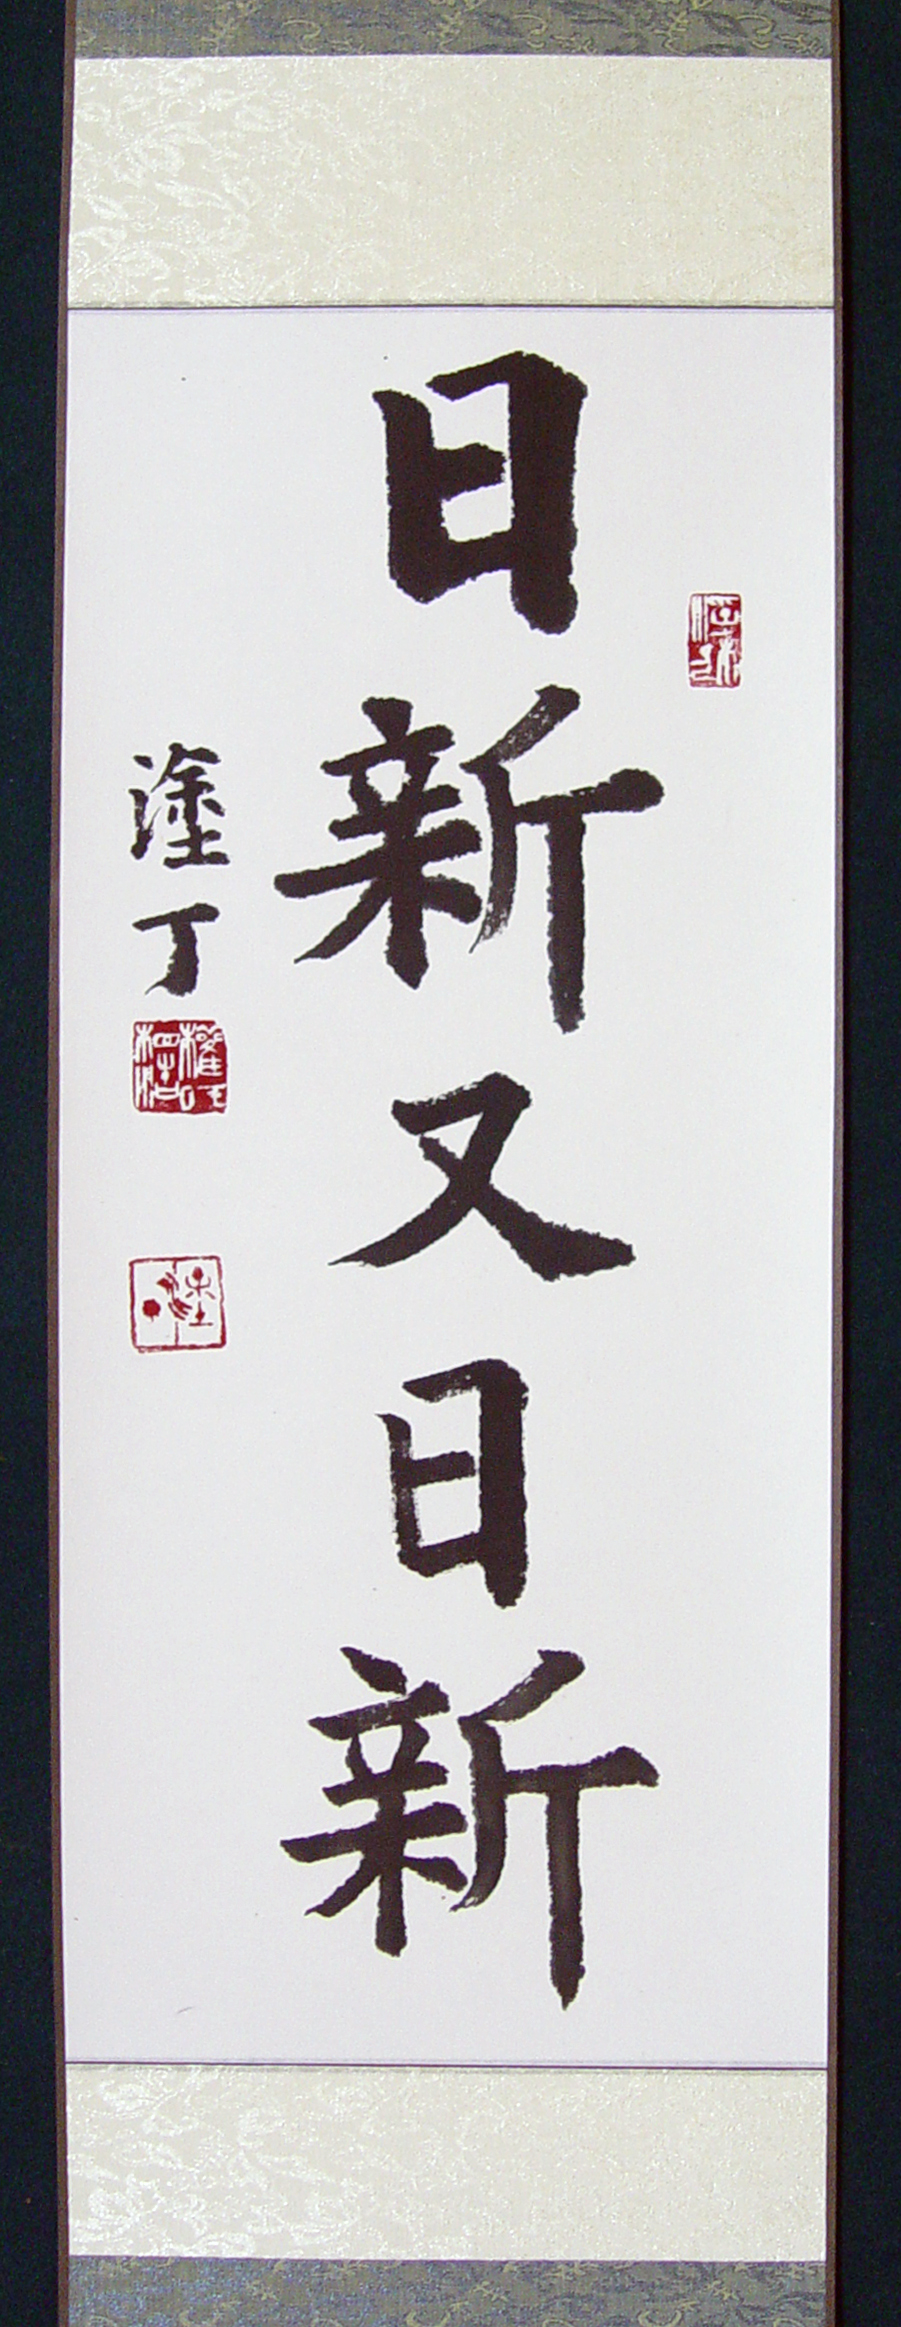 日新又日新
塗丁